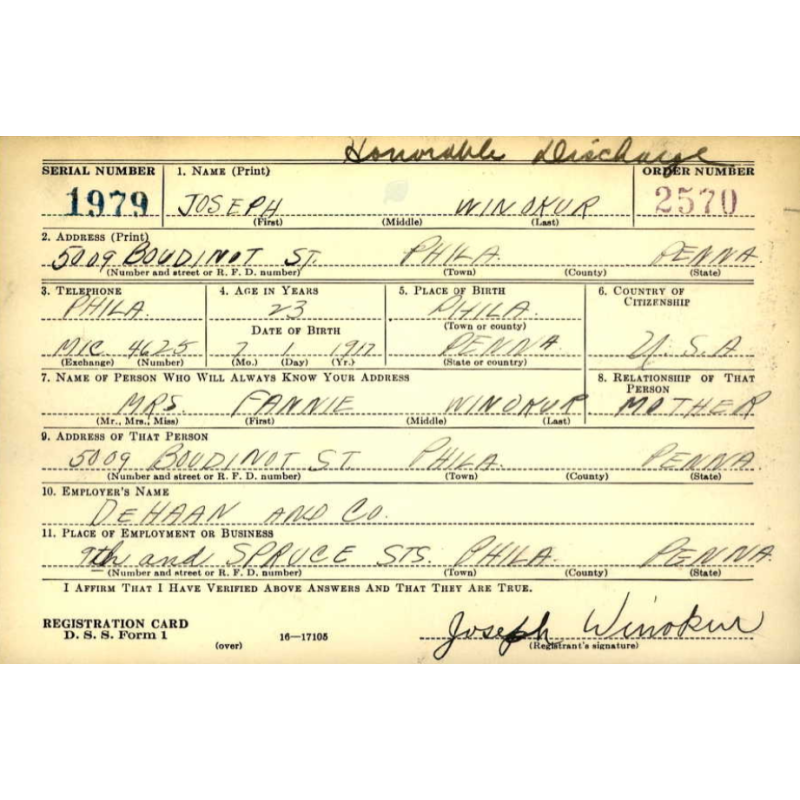 Honorable Discharge
SERIAL NUMBER 1. NAME (Print) ORDER NUMBER
1979 JOSEPH WINOKUR 2570
(First) (Middle) (Last)
2. ADDRESS (Print)
5009 BOUDINOT ST. PHILA. PENNA.
(Number and street or R. F. D. number) (Town) (County) (State)
3. TELEPHONE 4. AGE IN YEARS 5. PLACE OF BIRTH 6. COUNTRY OF
CITIZENSHIP
PHILA. 23 PHILA.
DATE OF BIRTH (Town or county)
MIC. 4625 7 1 1917 PENNA U.S.A
(Exchange) (Number) (Mo.) (Day) (Yr.) (State or country)
7. NAME OF PERSON WHO WILL ALWAYS KNOW YOUR ADDRESS 8. RELATIONSHIP OF THAT
PERSON
MRS. FANNIE WINOKUR MOTHER
(Mr., Mrs., Miss) (First) (Middle) (Last)
9. ADDRESS OF THAT PERSON
5009 BOUDINOT ST. PHILA. PENNA.
(Number and street or R. F. D. number) (Town) (County) (State)
10. EMPLOYER'S NAME
DEHAAN AND CO.
11. PLACE OF EMPLOYMENT OR BUSINESS
9th and SPRUCE STS. PHILA. PENNA.
(Number and street or R. F. D. number) (Town) (County) (State)
I AFFIRM THAT I HAVE VERIFIED ABOVE ANSWERS AND THAT THEY ARE TRUE.
REGISTRATION CARD
D. S. S. Form 1 (over) 16—17105 Joseph Winokur
(Registrant's signature)